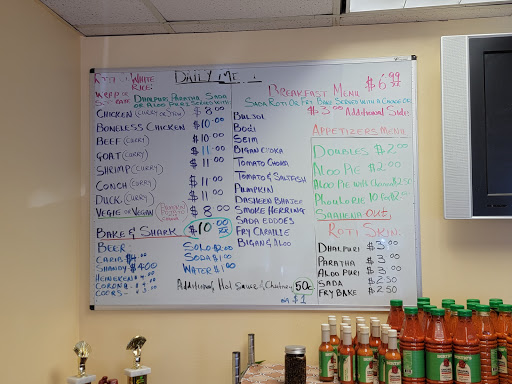 DAILY ME
Roti & White
Rice:
Dhalpuri, Paratha, Sada
or Aloo Puri Served with
Chicken (Curry or Stew) $8.00
Boneless Chicken $10.00
Beef (Curry) $10.00
Goat (Curry) $11.00
Shrimp (Curry) $11.00
Conch (Curry) $11.00
Duck (Curry) $11.00
Vegie or Vegan $8.00
Pumpkin
Bake & Shark $10.00
Beer
Carib $4.00
Shandy $4.00
Heineken
Corona
Coors
Solo $2.00
Soda $1.00
Water $1.00
Breakfast Menu $6.99
Sada Roti or Fry Bake Served with a Choice of
$3.00 Additional Side
Buljol
Bodi
Seim
Bigan Choka
Tomato Choka
Tomato & Saltfish
Pumpkin
Dasheen Bhajee
Smoke Herring
Sada Eddoes
Fry Caraille
Bigan & Aloo
Additional Hot Sauce & Chutney 50¢
or $1
Appetizers Menu
Doubles $2.00
Aloo Pie $2.00
Aloo Pie with Channa $2.50
Pholourie 10 For $2.00
Sahiena Out
Roti Skin:
Dhalpuri $3.00
Paratha $3.00
Aloo Puri $3.00
Sada $2.50
Fry Bake $2.50